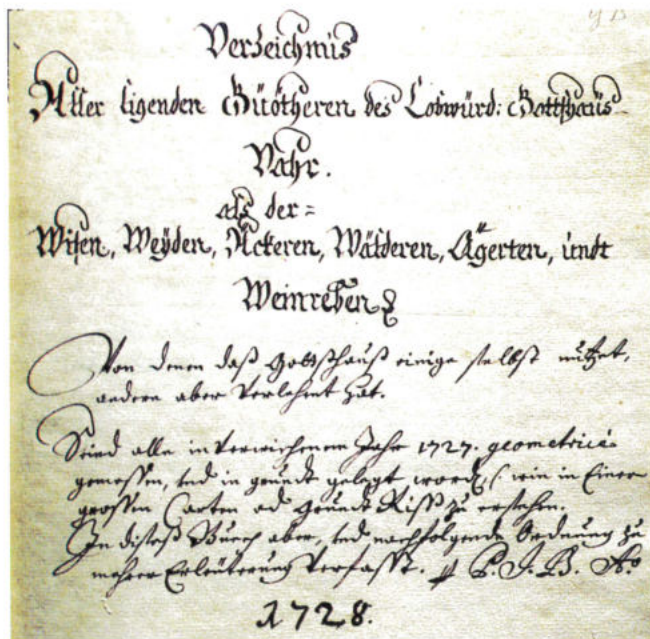 Verzeichnüs
Aller ligenden Güötheren des Lobwürd: Gottshaus
Vahr.
als der=
Wisen, Weyden, Äckeren, Wälderen, Ägerten, undt
Weinreben
Von denen daß Gottshauß einige selbst nutzet,
andere aber verlehnt hat.
Seind alle in verwichenem Jahr 1727. geometricè
gemessen, und in grundt gelegt word, (: wie in Einer
grossen Carten od grundt Riss zu ersehen.
In dises Buech aber, und nachfolgende Ordnung zu
mehrer Erleüterung verfasst. P. J. B. Ao
1728.